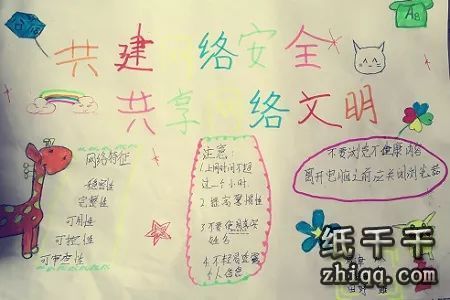 共建网络安全
共享网络文明
A8
网络特征
保密性
完整性
可用性
可控性
可审查性
注意:
1.上网时间不超
过一个小时.
2.提高警惕性
3.不要使用真实
姓名
4.不轻易泄露
个人信息
不要浏览不健康内容
离开电脑之前应关闭浏览器
纸千千
zhiqq.com